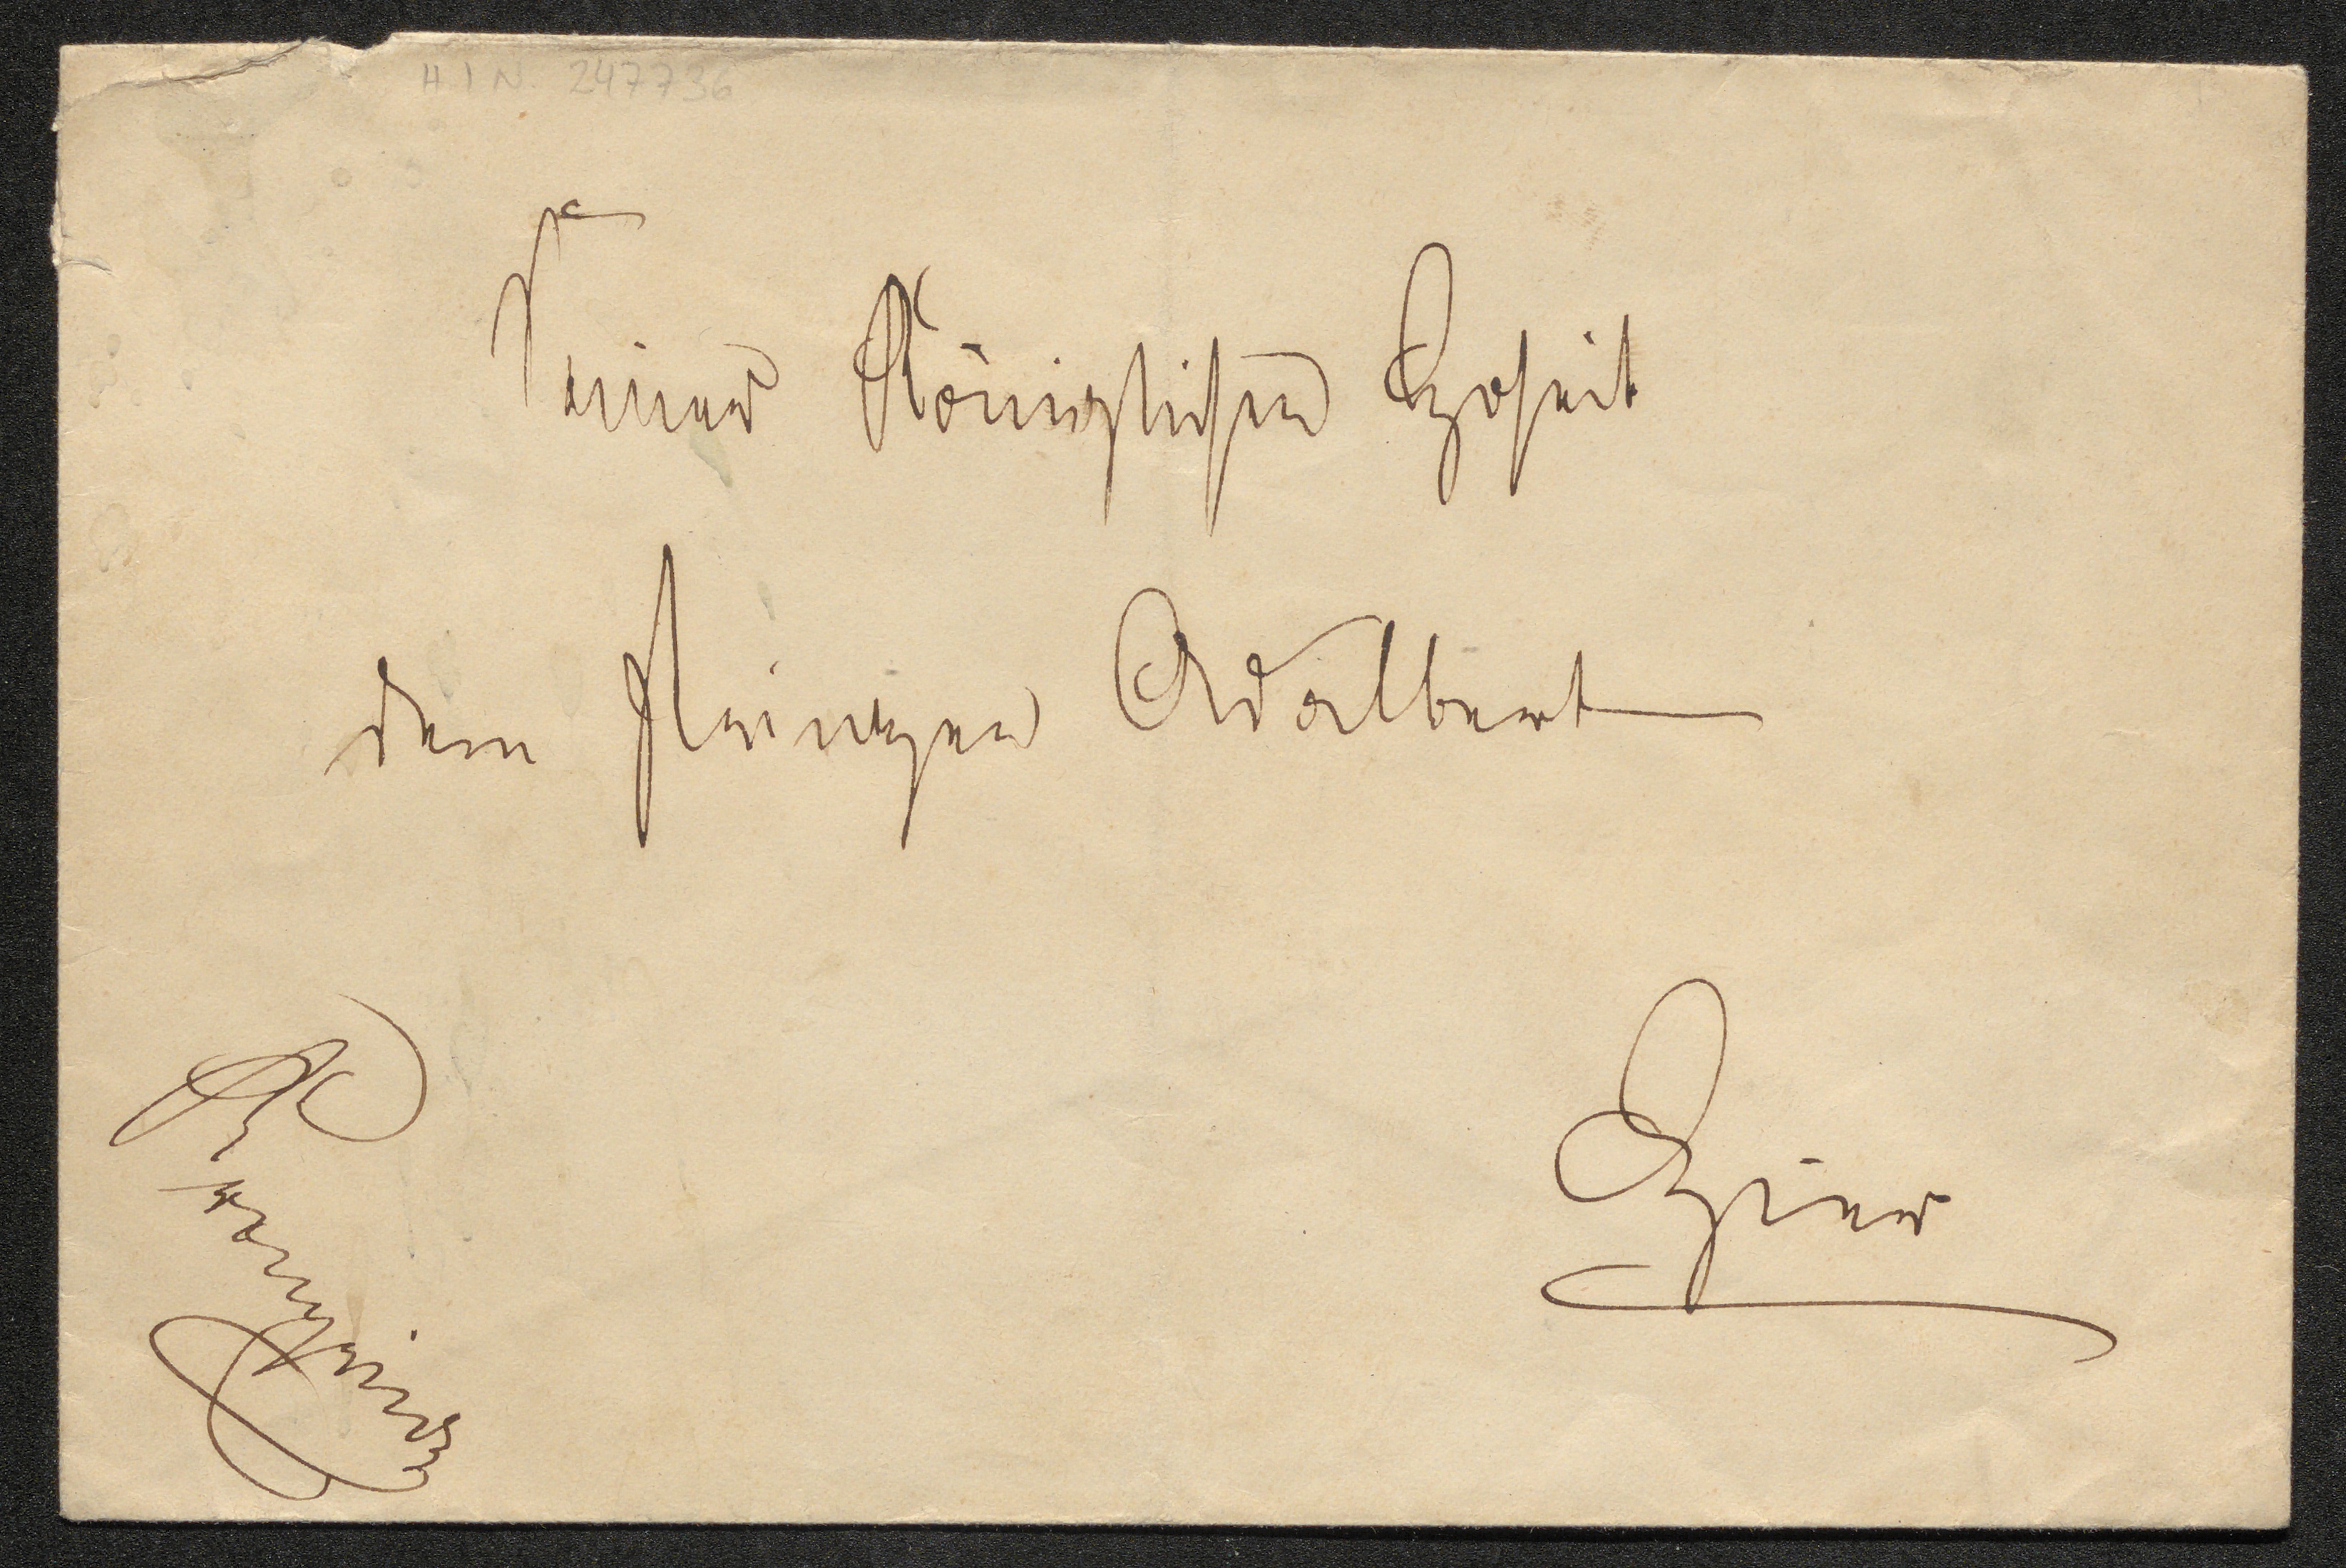 H I N. 247736
Seiner Königlichen Hoheit
dem Prinzen Adalbert
Hier